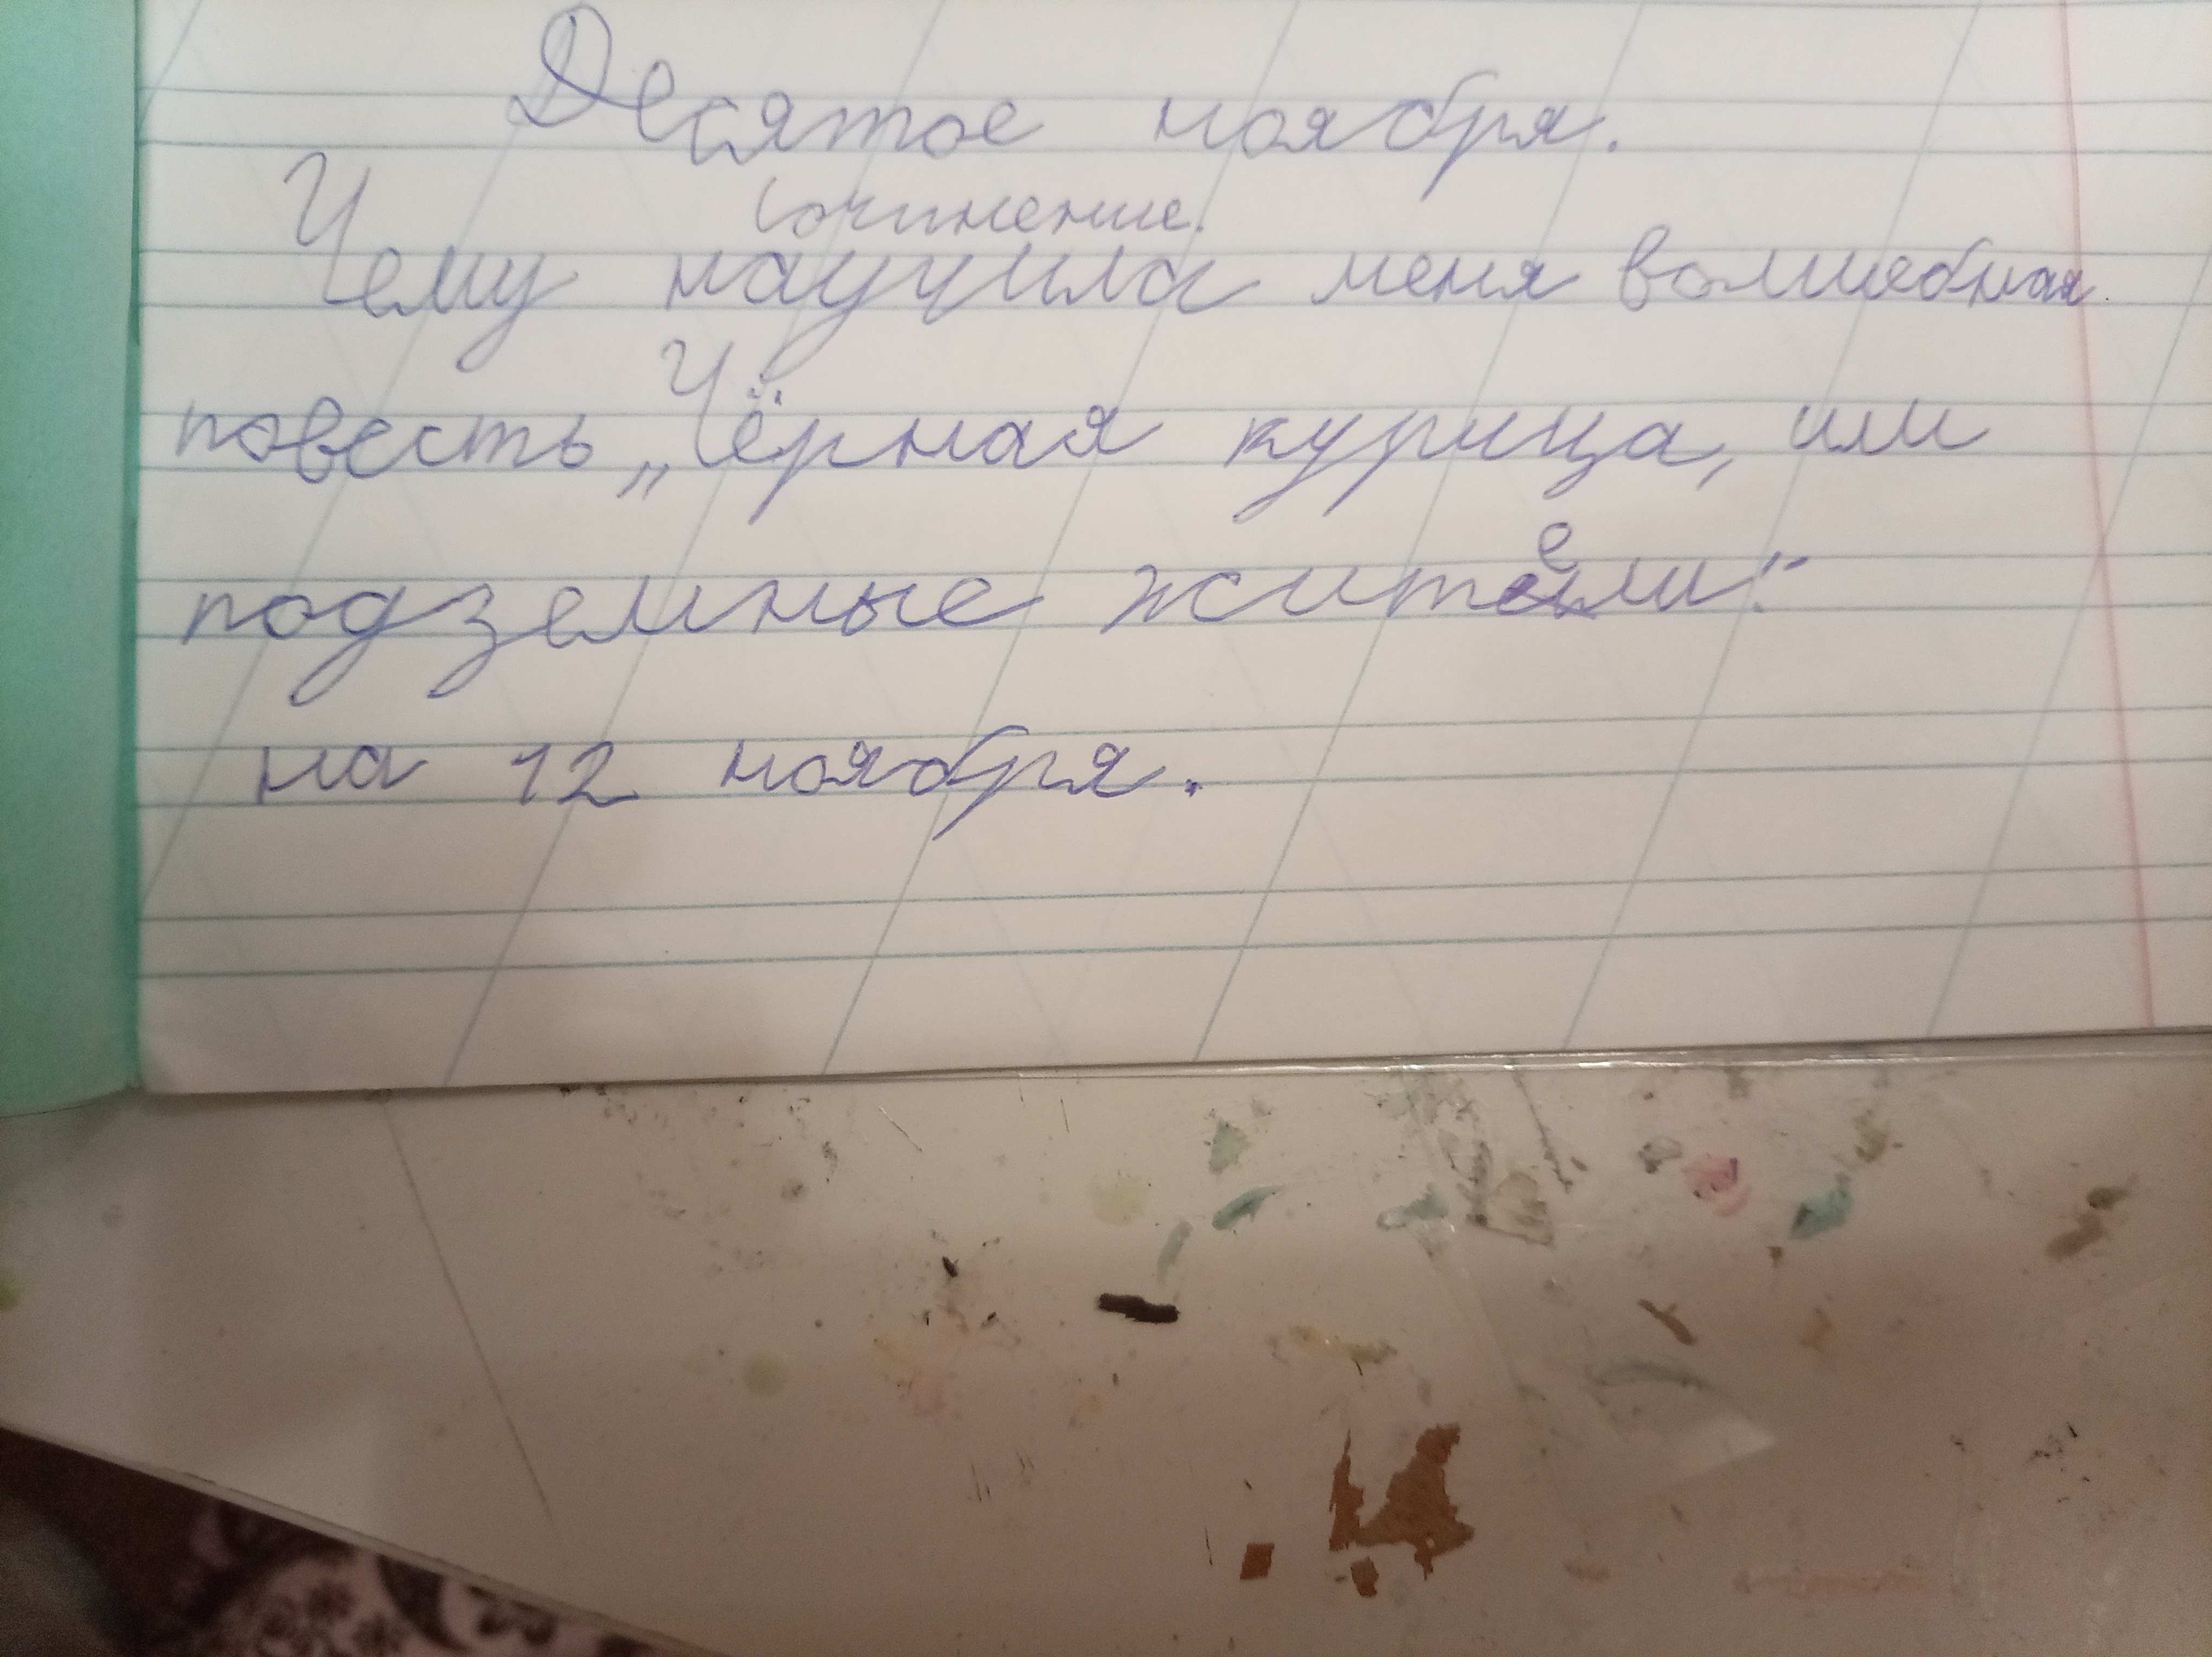 Десятое ноября.
Сочинение.
Чему научила меня волшебная
повесть „Чёрная курица, или
подземные жители".
на 12 ноября.